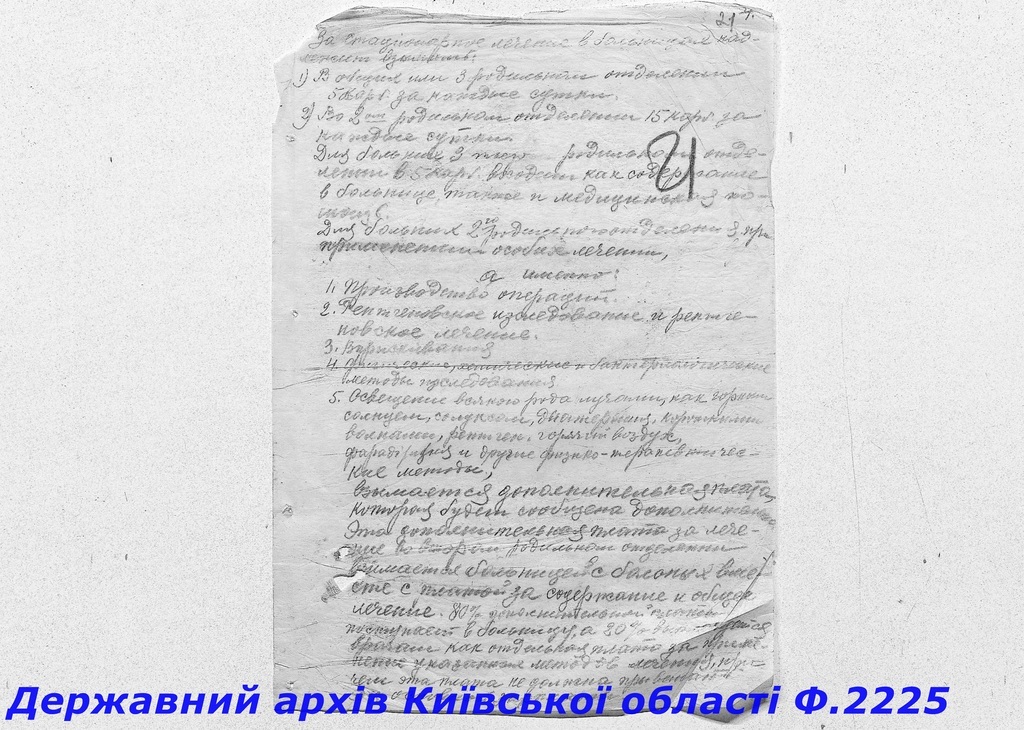 21
За стационарное лечение в больницах над-
лежит взымать:
1) В общих или 3 родильном отделении
5 карб. за каждые сутки.
2) Во 2ом родильном отделении 15 карб. за
каждые сутки.
Для больных 3 родильного отде-
ления в 5 карб. входит как содержание
в больнице, также и медицинская по-
мощь.
Для больных 2го родильного отделения при
применении особых лечений,
а именно:
1. Производство операций.
2. Рентгеновское изследование и рентге-
новское лечение.
3. Впрыскивания
4. химические и бактериологические
методы последования
5. Освещение всякого рода лучами, как горным
солнцем, солуксом, диатермия, короткими
волнами, рентген. горячий воздух,
фарадизация и другие физико-терапевтичес-
кие методы,
взымается дополнительная плата,
которая будет сообщена дополнительно
Эта дополнительная плата за лече-
ние во втором родильном отделении
взимается больницей с больных вме-
сте с платой за содержание и общее
лечение. 80% дополнительной платы
поступает в больницу, а 20%
врачам как отдельная плата за приме-
нение указанных методов лечения, при-
чем эта плата не должна превышать
Державний архів Київської області Ф.2225